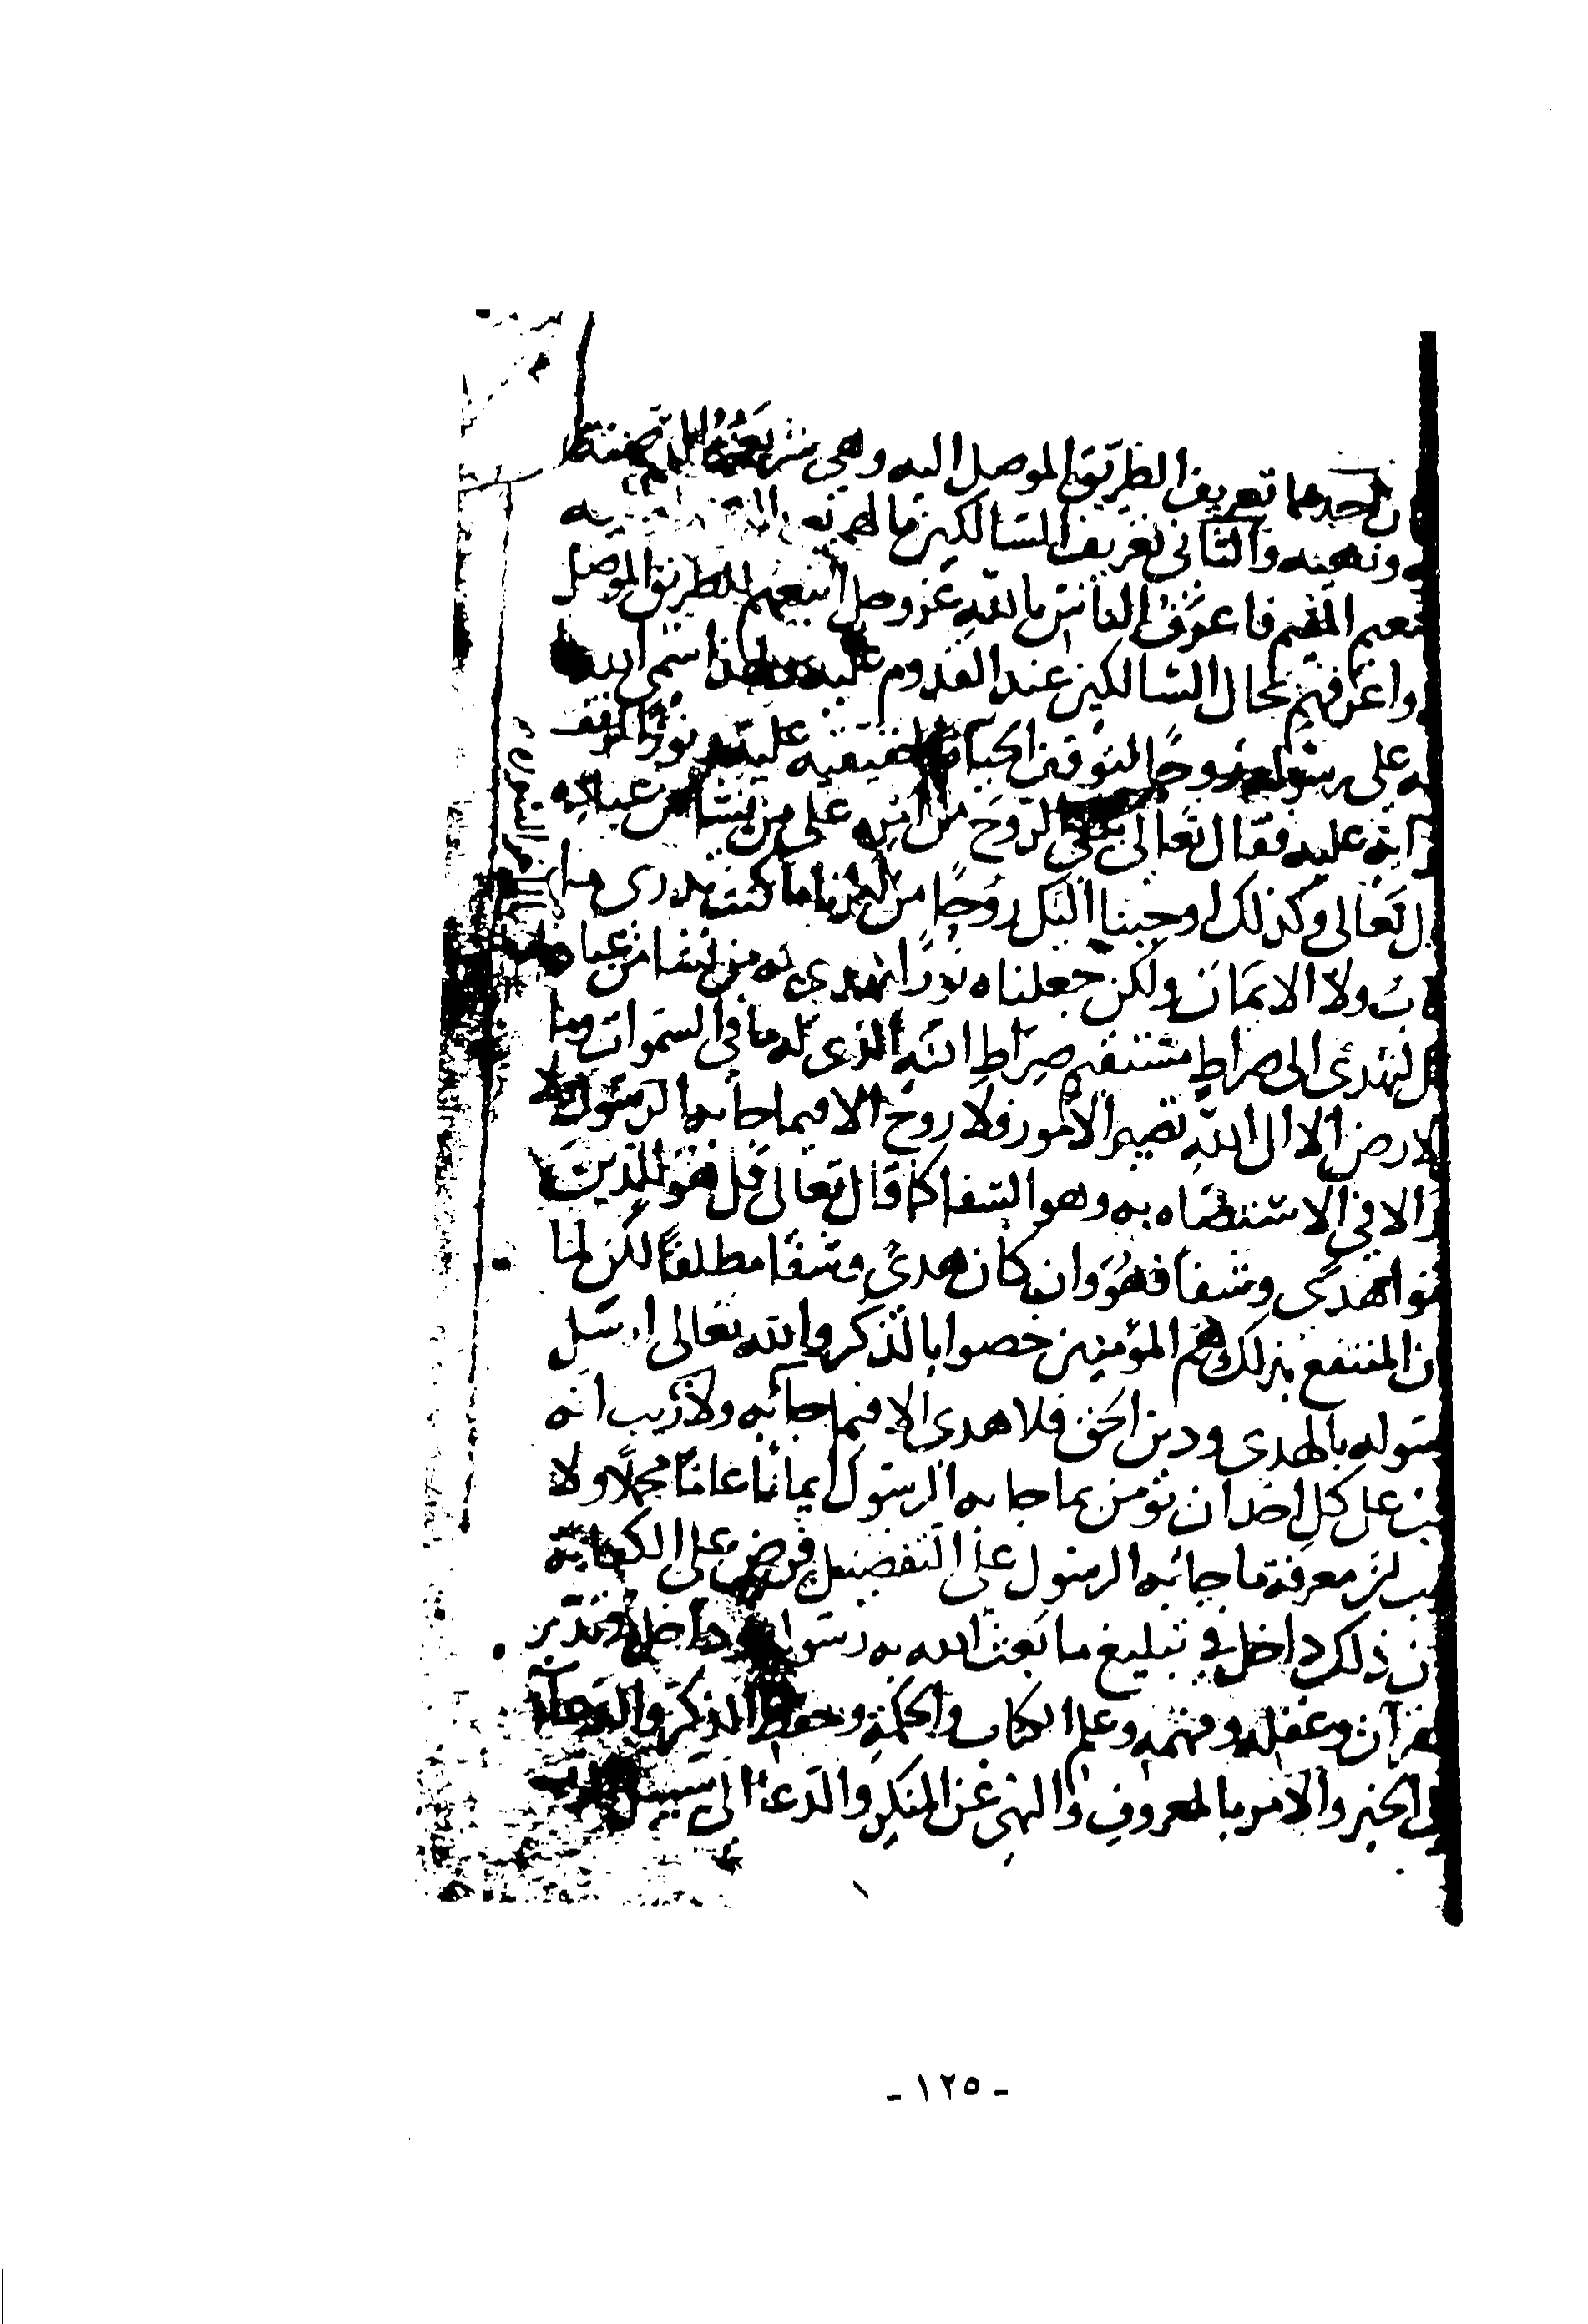 احدهما تعريف الطريق الموصل اليه وهي شريعته المتضمنة
ونهيه والثاني تعريف السالكين ما لهم بعد
النعيم المقيم فاعرف الناس بالله عز وجل اتبعهم للطريق الموصل
واعرفهم بحال السالكين عند القدوم عليه ولهذا سمى الله
له على رسوله روحا لتوقف الحياة الحقيقية عليه ونورا لتوقف
اية عليه فقال تعالى يلقي الروح من امره على من يشا من عباده
ل تعالى وكذلك اوحينا اليك روحا من امرنا ما كنت تدري ما
اب ولا الايمان ولكن جعلناه نورا نهدي به من نشا من عبادنا
ك لتهدي الى صراط مستقيم صراط الله الذي له ما في السموات وما
الارض الا الى الله تصير الامور فلا روح الا فيما جا به الرسول ولا
ر الا في الاستضاه به وهو الشفا كما قال تعالى قل هو للذين
منوا هدى وشفا فهو وان كان هدى وشفا مطلقا لكن لما
ن المنتفع بذلك هم المؤمنين خصوا بالذكر والله تعالى ارسل
سوله بالهدى ودين الحق فلا هدى الا فيما جا به ولا ريب انه
جب على كل احد ان يؤمن بما جا به الرسول ايمانا عاما مجملا ولا
يب لن معرفة ما جا به الرسول على التفصيل فرض على الكفاية
ن ذلك داخل في تبليغ ما بعث الله به رسوله وداخل في تدبر
قرآن وعقله وفهمه وعلم الكتاب والحكمة وحفظ الذكر والدعآ
ى الخير والامر بالمعروف والنهي عن المنكر والدعا الى سبيل الرب
- ١٢٥ -